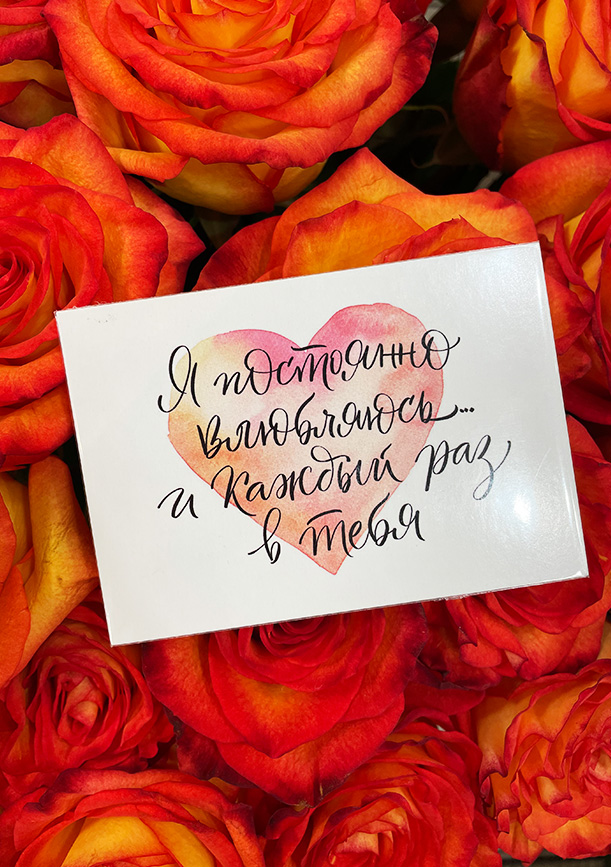 Я постоянно
влюбляюсь...
и каждый раз
в тебя